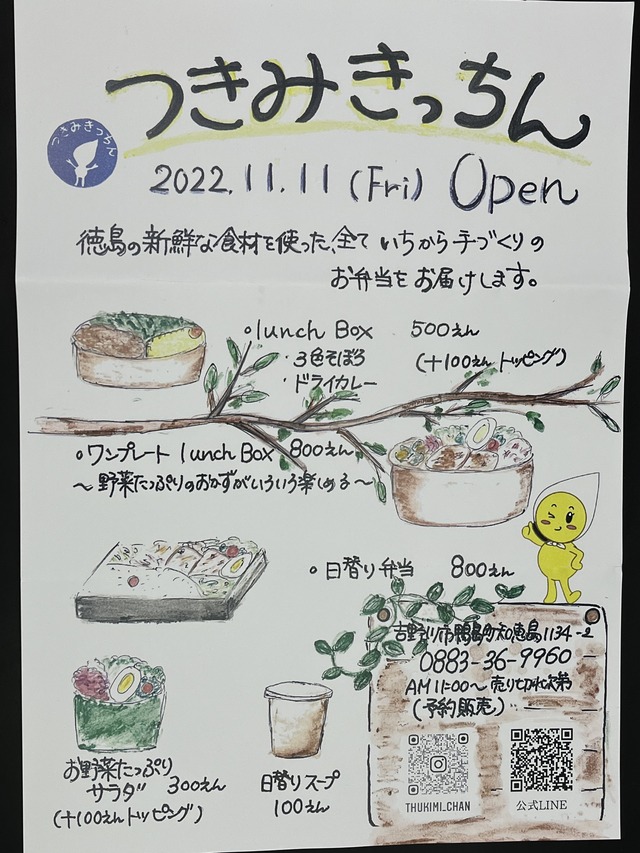 つきみきっちん
つきみきっちん
2022.11.11 (Fri) Open
徳島の新鮮な食材を使った、全て いちから手づくりの
お弁当をお届けします。
・lunch Box 500えん
・3色そぼろ (+100えんトッピング)
・ドライカレー
・ワンプレート lunch Box 800えん
～野菜たっぷりのおかずがいろいろ楽しめる～
・日替り弁当 800えん
吉野川市鴨島町知恵島1134-2
0883-36-9960
AM 11:00～売り切れ次第
(予約販売)
THUKIMI_CHAN
公式LINE
お野菜たっぷり
サラダ 300えん
(+100えんトッピング)
日替りスープ
100えん